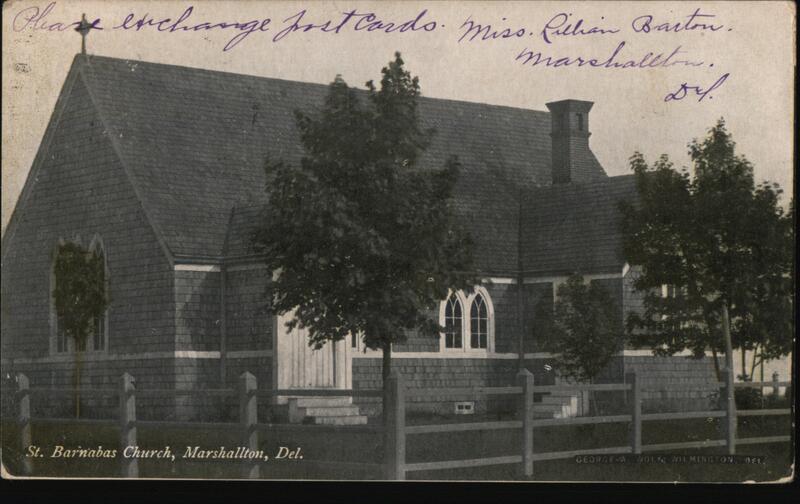 Please exchange post Cards. Miss. Lillian Barton.
Marshallton.
Del.
St. Barnabas Church, Marshallton, Del.
GEORGE A. WOLF, WILMINGTON, DEL.